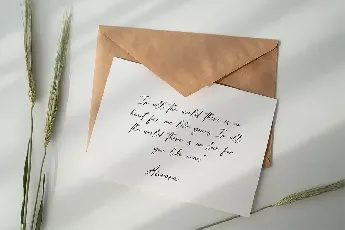 In all the world there is no
heart for me like yours. In all
the world there is no love for
you like mine.